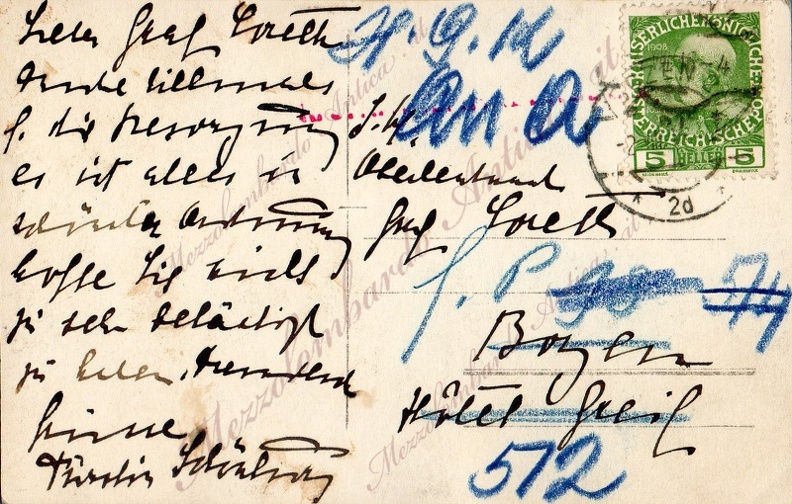 Lieber Graf Coreth
danke vielmals
f. die Besorgung
es ist alles in
schönster Ordnung
hoffe Sie nicht
zu sehr belästigt
zu haben. Freundliche
Grüsse
Fürstin Schönburg
S. H.
Oberleutnant
Graf Coreth
Bozen
Hôtel Greif
512
KAISERLICHE KÖNIGLICHE
ÖSTERREICHISCHE POST
1908
5 HELLER 5
WIEN
2d
Mezzolombardo Antica.it